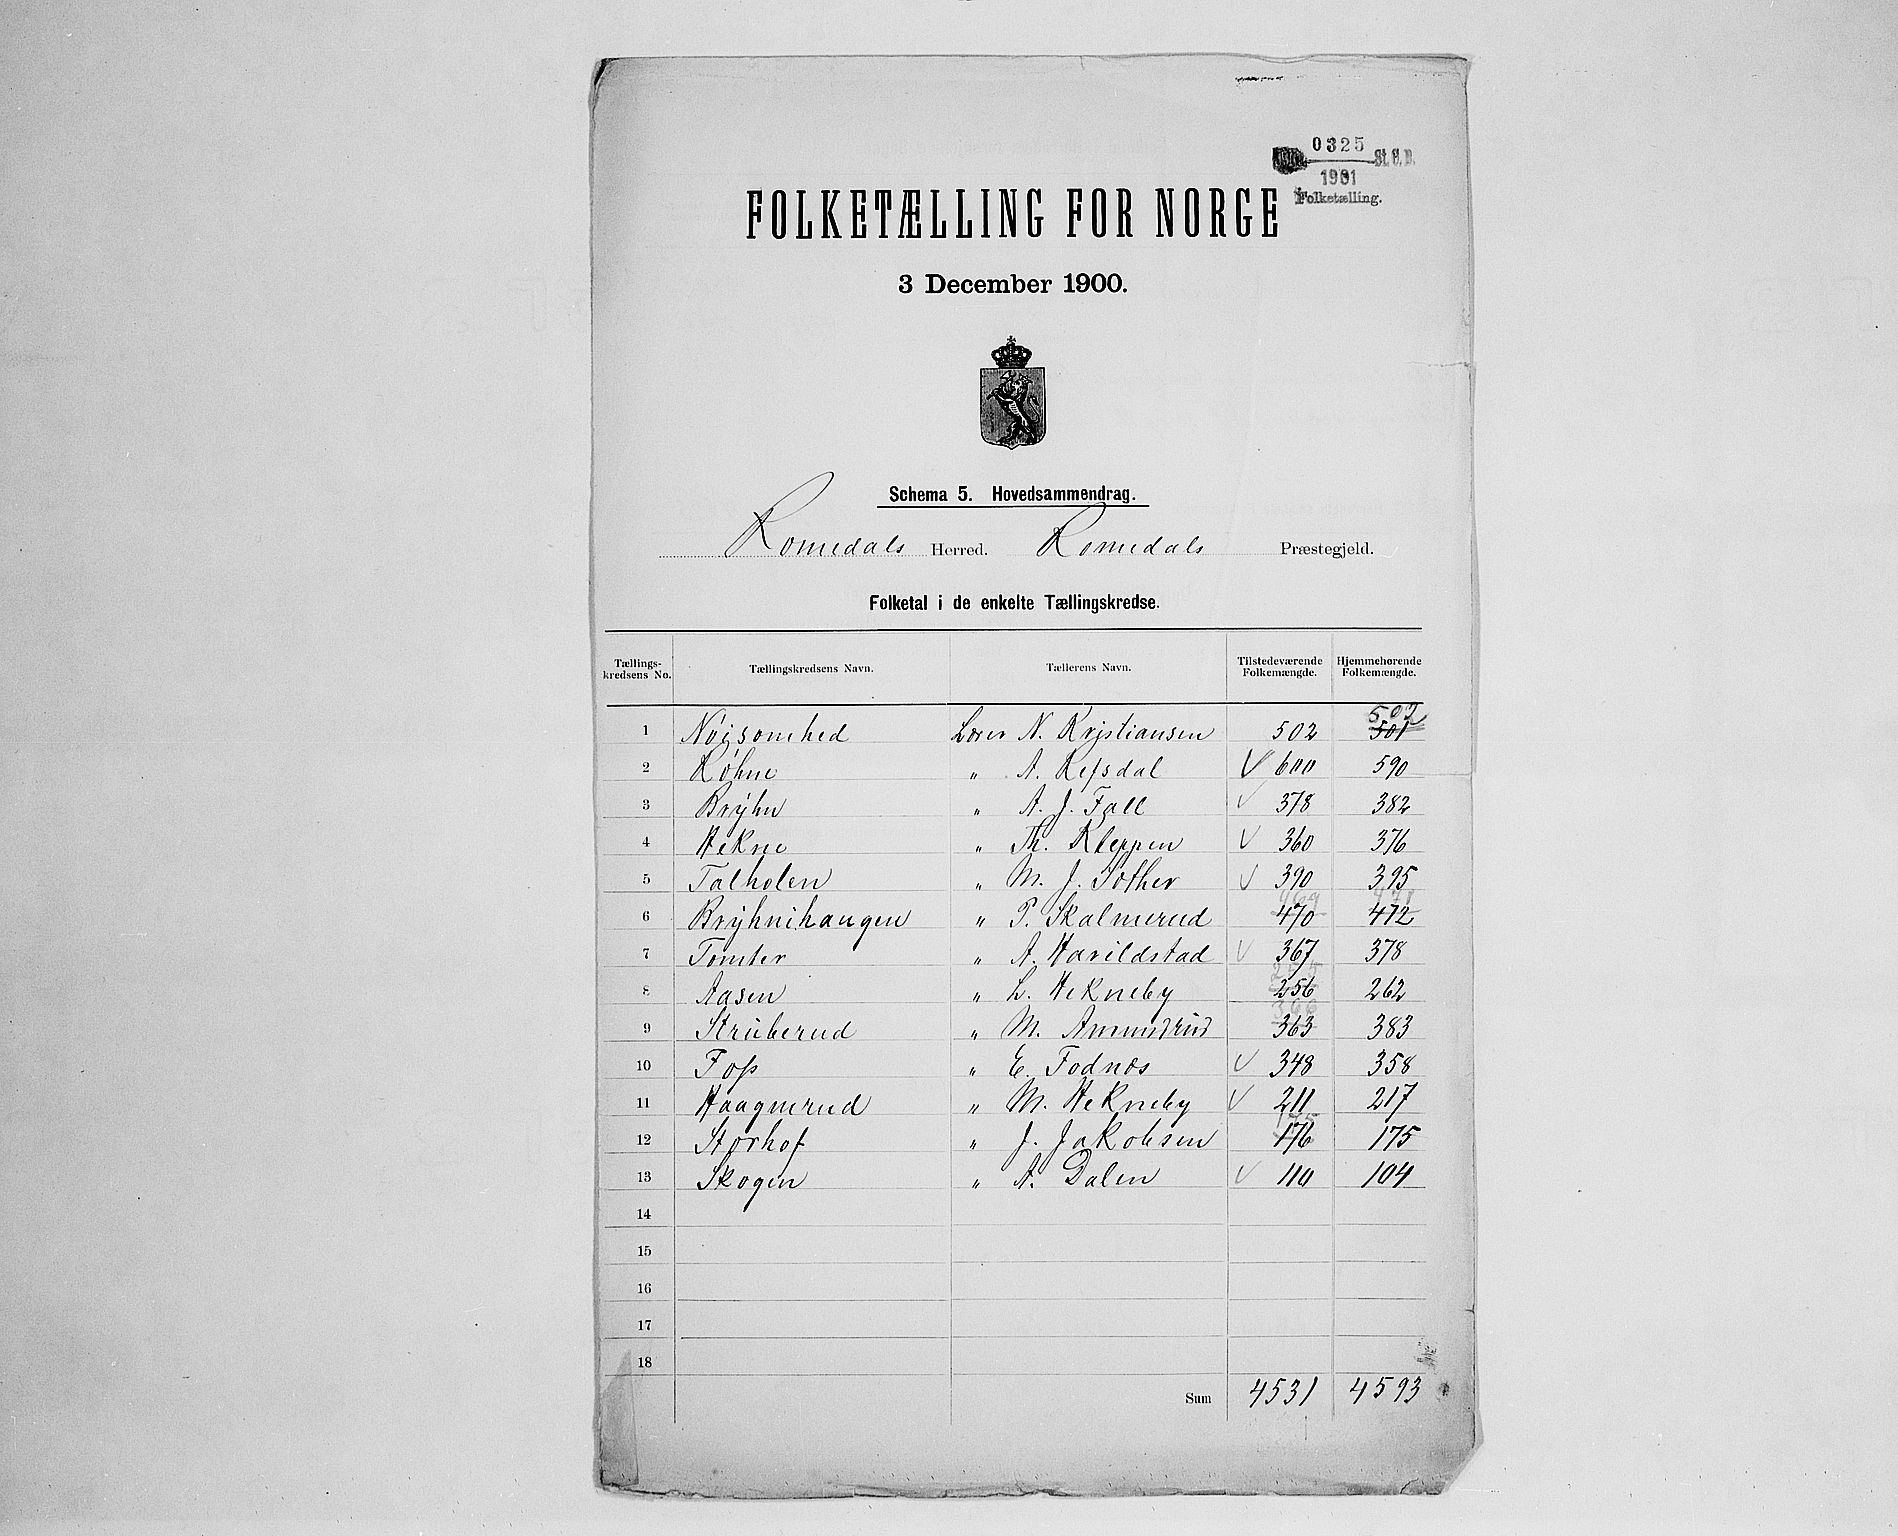 0325
St. S. B.
1901
Folketælling.
FOLKETÆLLING FOR NORGE
3 December 1900.
Schema 5. Hovedsammendrag.
Romedals Herred. Romedals Præstegjeld.
Folketal i de enkelte Tællingskredse.
Tællings-kredsens No. Tællingskredsens Navn. Tællerens Navn. Tilstedeværende Folkemængde. Hjemmehørende Folkemængde.
502
1 Nöisomhed Lærer N. Kristiansen 502 501
2 Köhne " A. Refsdal √ 600 590
3 Brÿhn " A. J. Fall √ 378 382
4 Hekne " Th. Kleppen √ 360 376
5 Talholen " M. J. Sother √ 390 395
469 471
6 Brÿhnihaugen " P. Skalmerud 470 472
7 Tomter " A. Harildstad √ 367 378
255
8 Aasen " L. Hekneby 256 262
9 Struberud " M. Amundrud 363 383
10 Foss " E. Fodnæs √ 348 358
11 Haagmerud " M. Hekneby √ 211 217
175
12 Storhof " J. Jakobsen 176 175
13 Skogen " A. Dalen √ 110 104
14
15
16
17
18
Sum 4531 4593